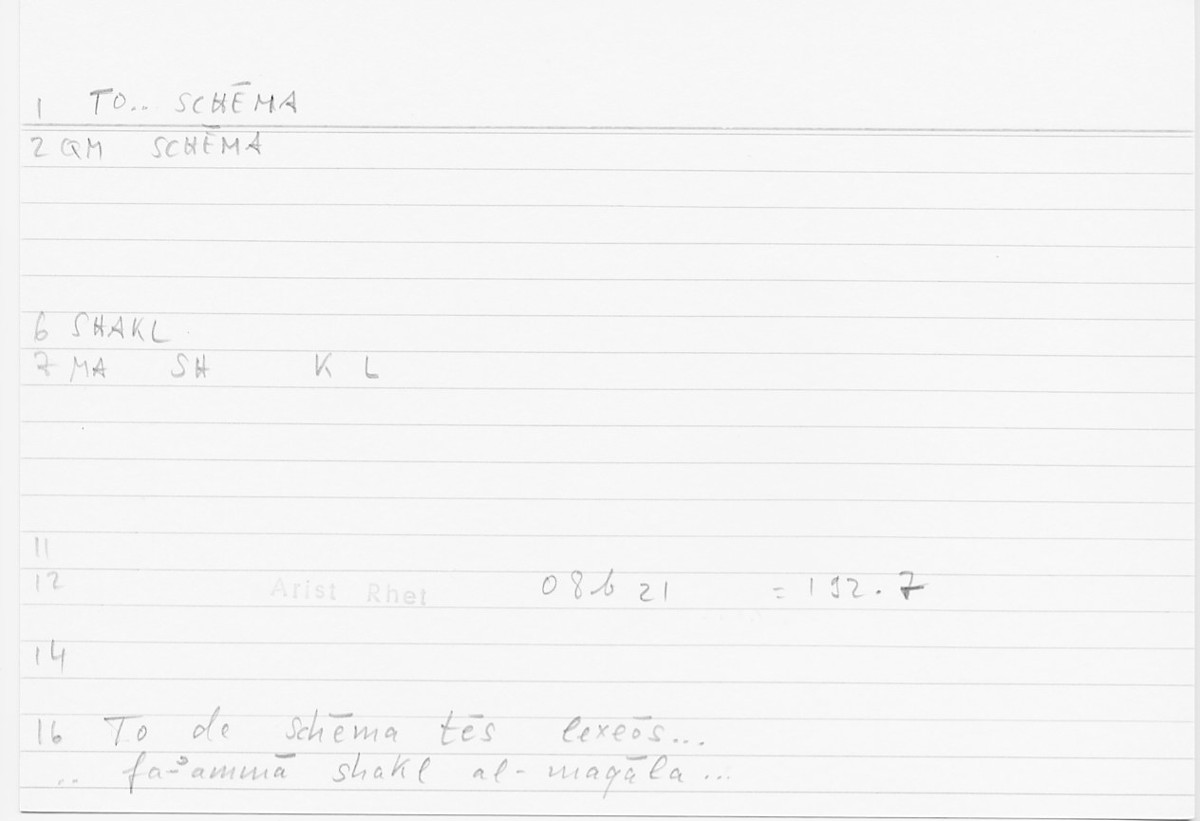 1 TO.. SCHĒMA
2 QM SCHĒMA
6 SHAKL
7 MA SH K L
11
12 Arist Rhet 08b 21 = 192.7
14
16 To de schēma tēs lexeōs...
.. fa-ʾammā shakl al-maqāla...